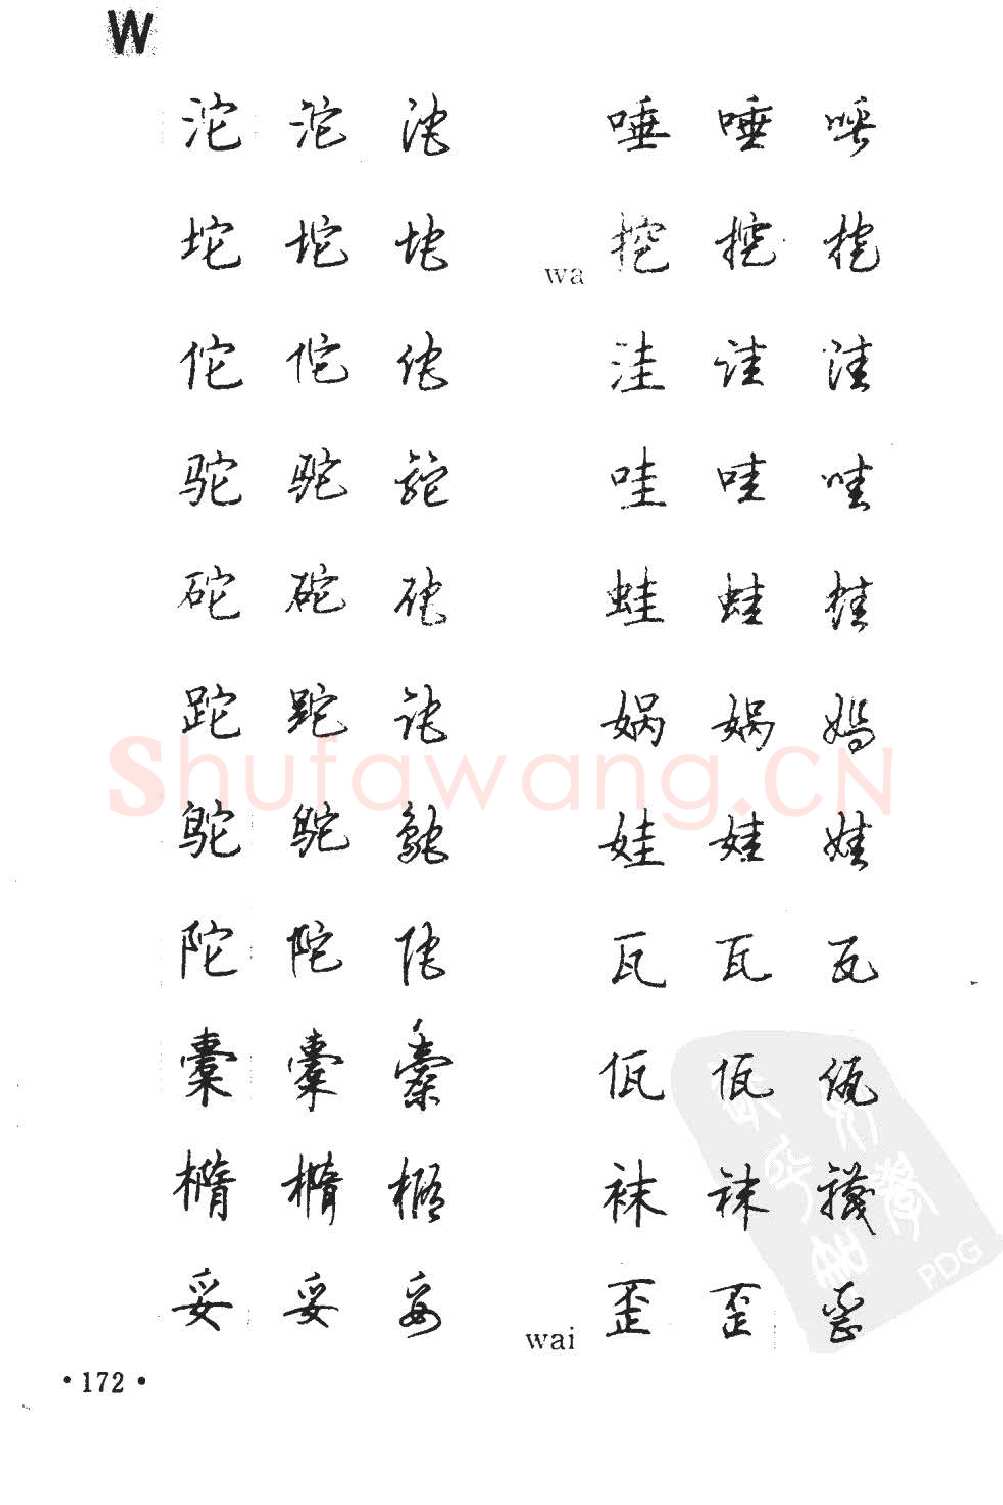 W
沱 沱 沱
坨 坨 坨
佗 佗 佗
驼 驼 駝
砣 砣 砣
跎 跎 跎
鸵 鸵 鴕
陀 陀 陀
橐 橐 橐
椭 椭 橢
妥 妥 妥
唾 唾 唾
wa 挖 挖 挖
洼 洼 洼
哇 哇 哇
蛙 蛙 蛙
娲 娲 媧
娃 娃 娃
瓦 瓦 瓦
佤 佤 佤
袜 袜 襪
wai 歪 歪 歪
·172·
Shufawang.CN
PDG